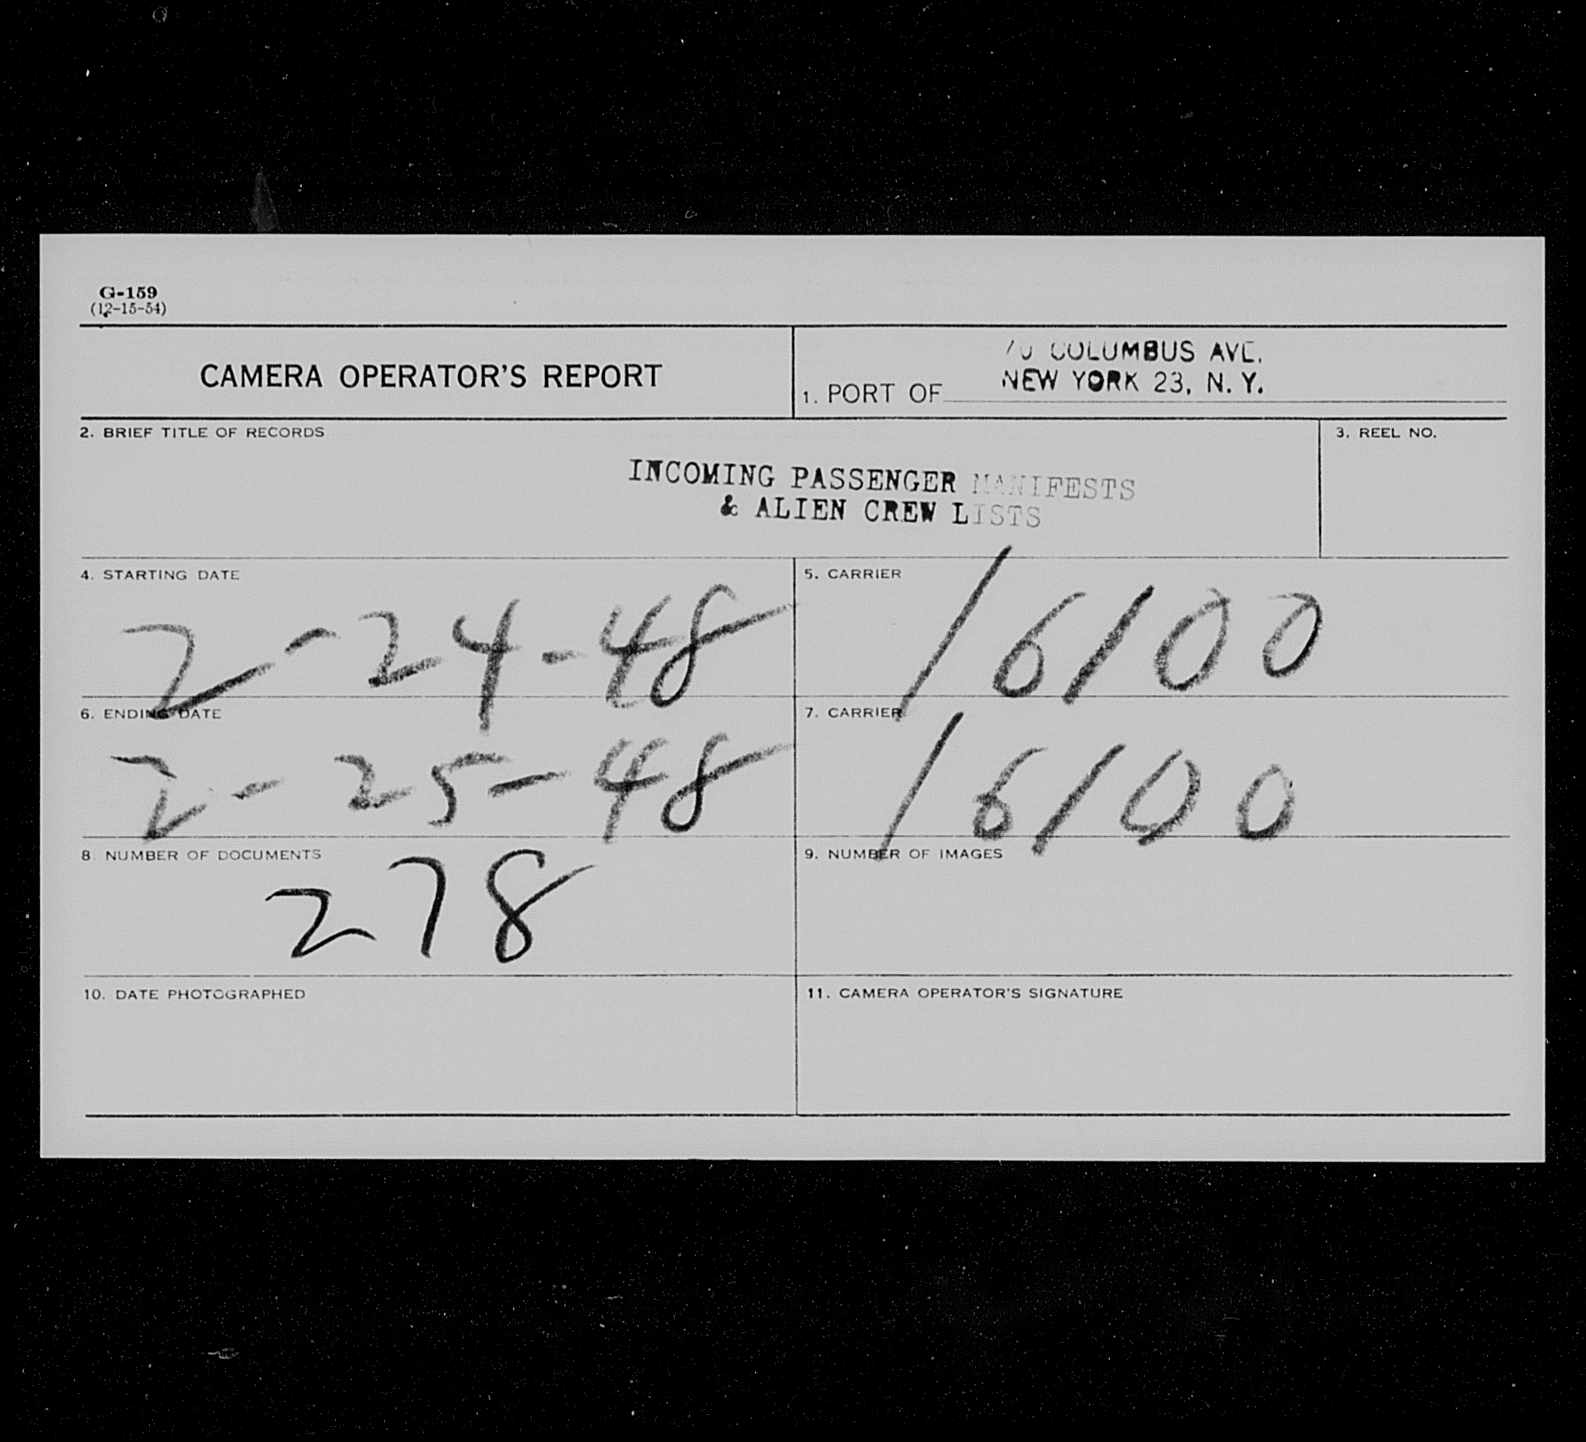 G-159
(12-15-54)
CAMERA OPERATOR'S REPORT
COLUMBUS AVE.
1. PORT OF NEW YORK 23, N. Y.
2. BRIEF TITLE OF RECORDS
3. REEL NO.
INCOMING PASSENGER MANIFESTS
& ALIEN CREW LISTS
4. STARTING DATE
2-24-48
5. CARRIER
16100
6. ENDING DATE
2-25-48
7. CARRIER
16100
8. NUMBER OF DOCUMENTS
278
9. NUMBER OF IMAGES
10. DATE PHOTOGRAPHED
11. CAMERA OPERATOR'S SIGNATURE